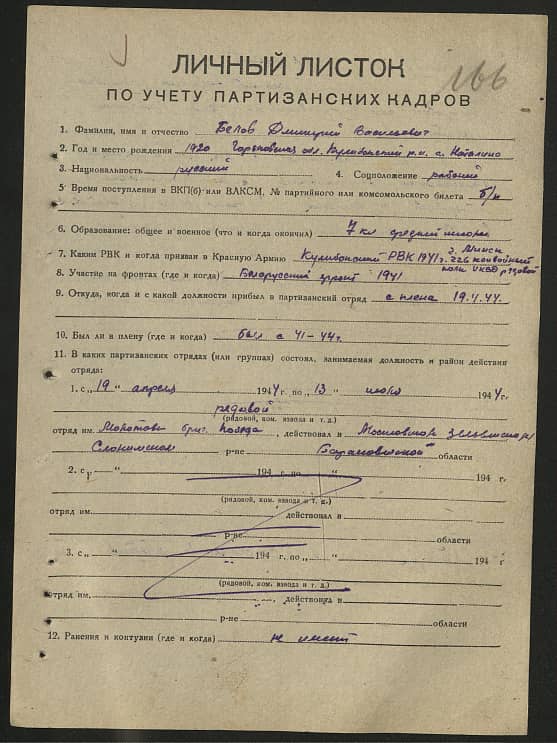 166
ЛИЧНЫЙ ЛИСТОК
ПО УЧЕТУ ПАРТИЗАНСКИХ КАДРОВ
1. Фамилия, имя и отчество Белов Дмитрий Васильевич
2. Год и место рождения 1920 обл. р-н с.
3. Национальность русский 4. Соцположение рабочий
5 Время поступления в ВКП(б) или ВЛКСМ, № партийного или комсомольского билета б/п
6. Образование: общее и военное (что и когда окончил) 7 кл средней школы
г. Минск
7. Каким РВК и когда призван в Красную Армию РВК 1941 г. 226 конвойный
полк НКВД рядовой
8. Участие на фронтах (где и когда) Белорусский фронт 1941
9. Откуда, когда и с какой должности прибыл в партизанский отряд с плена 19.4.44.
10. Был ли в плену (где и когда) был с 41-44г.
11. В каких партизанских отрядах (или группах) состоял, занимаемая должность и район действия
отряда:
1. с „19 “ апреля 1944 г. по „ 13 “ июля 1944 г.
рядовой
(рядовой, ком. взвода и т. д.)
отряд им. Молотова бриг. , действовал в
Слонимском р-не Барановичской области
2. с „ “ 194 г. по „ “ 194 г.
(рядовой, ком. взвода и т. д.)
отряд им. действовал в
р-не области
3. с „ “ 194 г. по „ “ 194 г
(рядовой, ком. взвода и т. д.)
отряд им. , действовал в
р-не области
12. Ранения и контузии (где и когда) не имеет